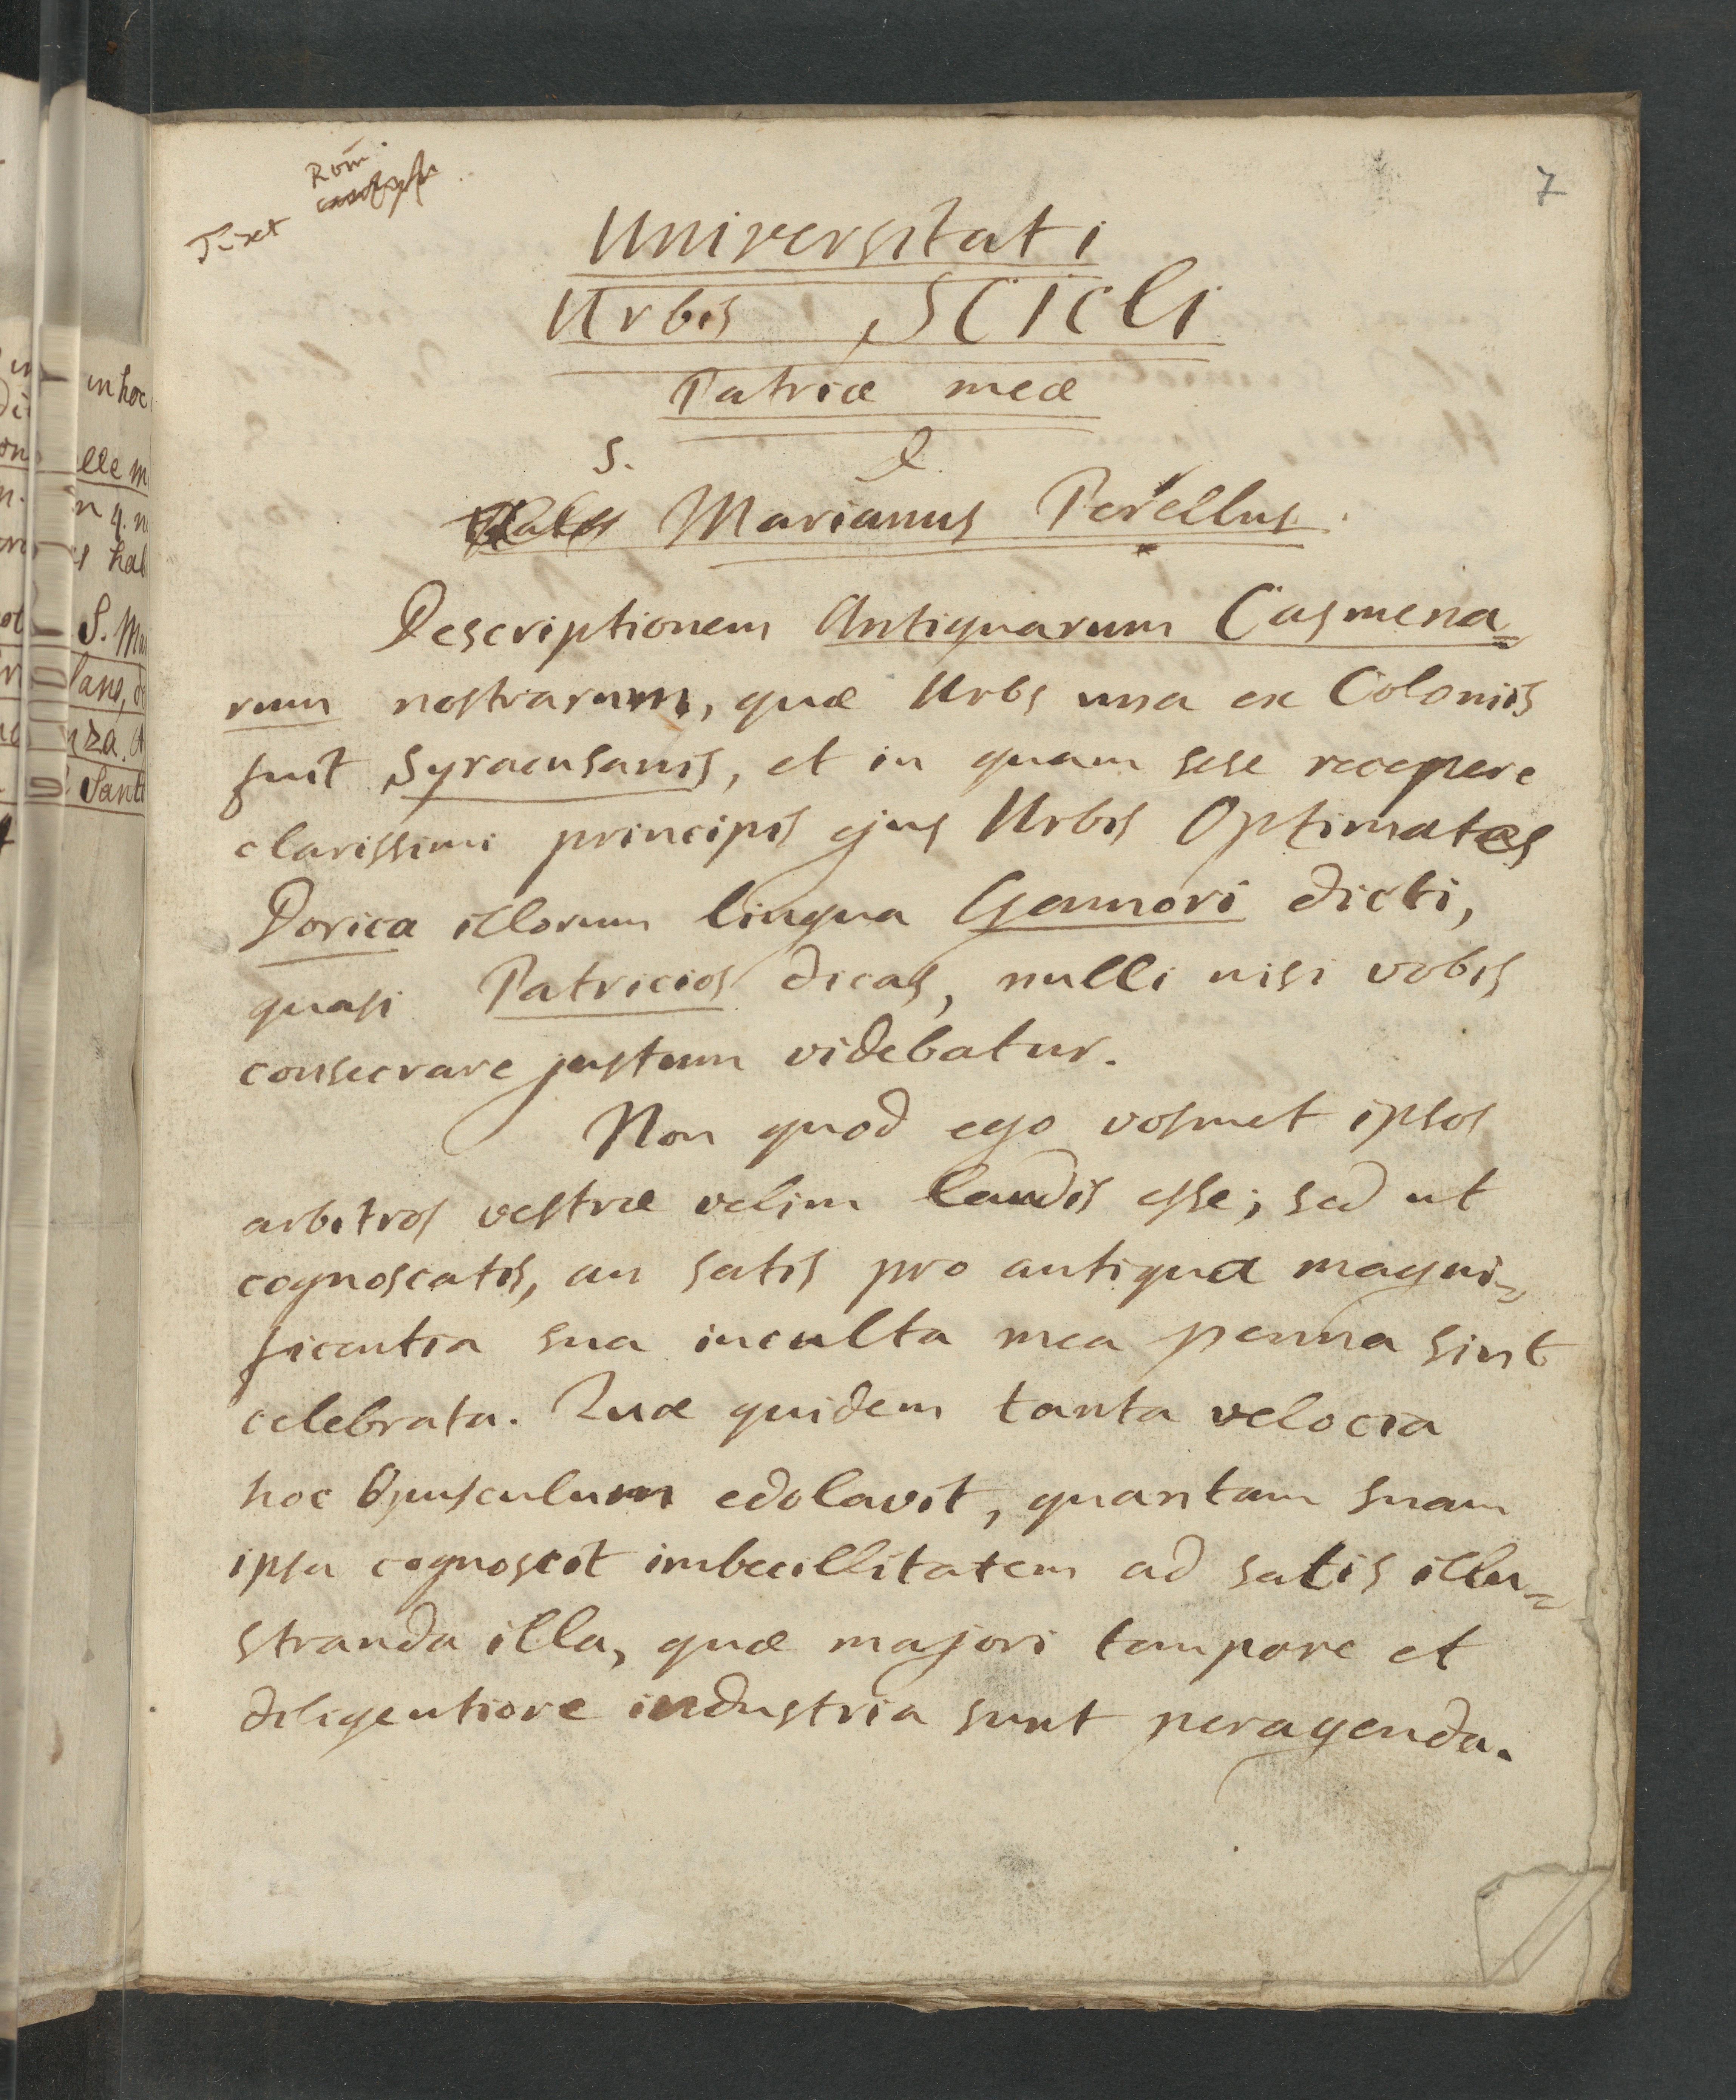 7
Rom.
Text
Universitati
Urbis SCICLI
Patriæ meæ
S. D.
Marianus Perellus.
Descriptionem Antiquarum Casmena=
rum nostrarum, quæ Urbs una ex Coloniis
fuit Syracusanis, et in quam sese recepere
clarissimi principis ejus Urbis Optimates
Dorica illorum lingua Gamori dicti,
quasi Patricios dicas, nulli nisi vobis
consecrare justum videbatur.
Non quod ego vosmet ipsos
arbitros vestræ velim laudis esse; sed ut
cognoscatis, an satis pro antiqua magni=
ficentia sua inculta mea penna sint
celebrata. Quæ quidem tanta velocia
hoc Opusculum edolavit, quantam suam
ipsa cognoscit imbecillitatem ad satis illu=
stranda illa, quæ majori tempore et
diligentiore industria sunt peragenda.